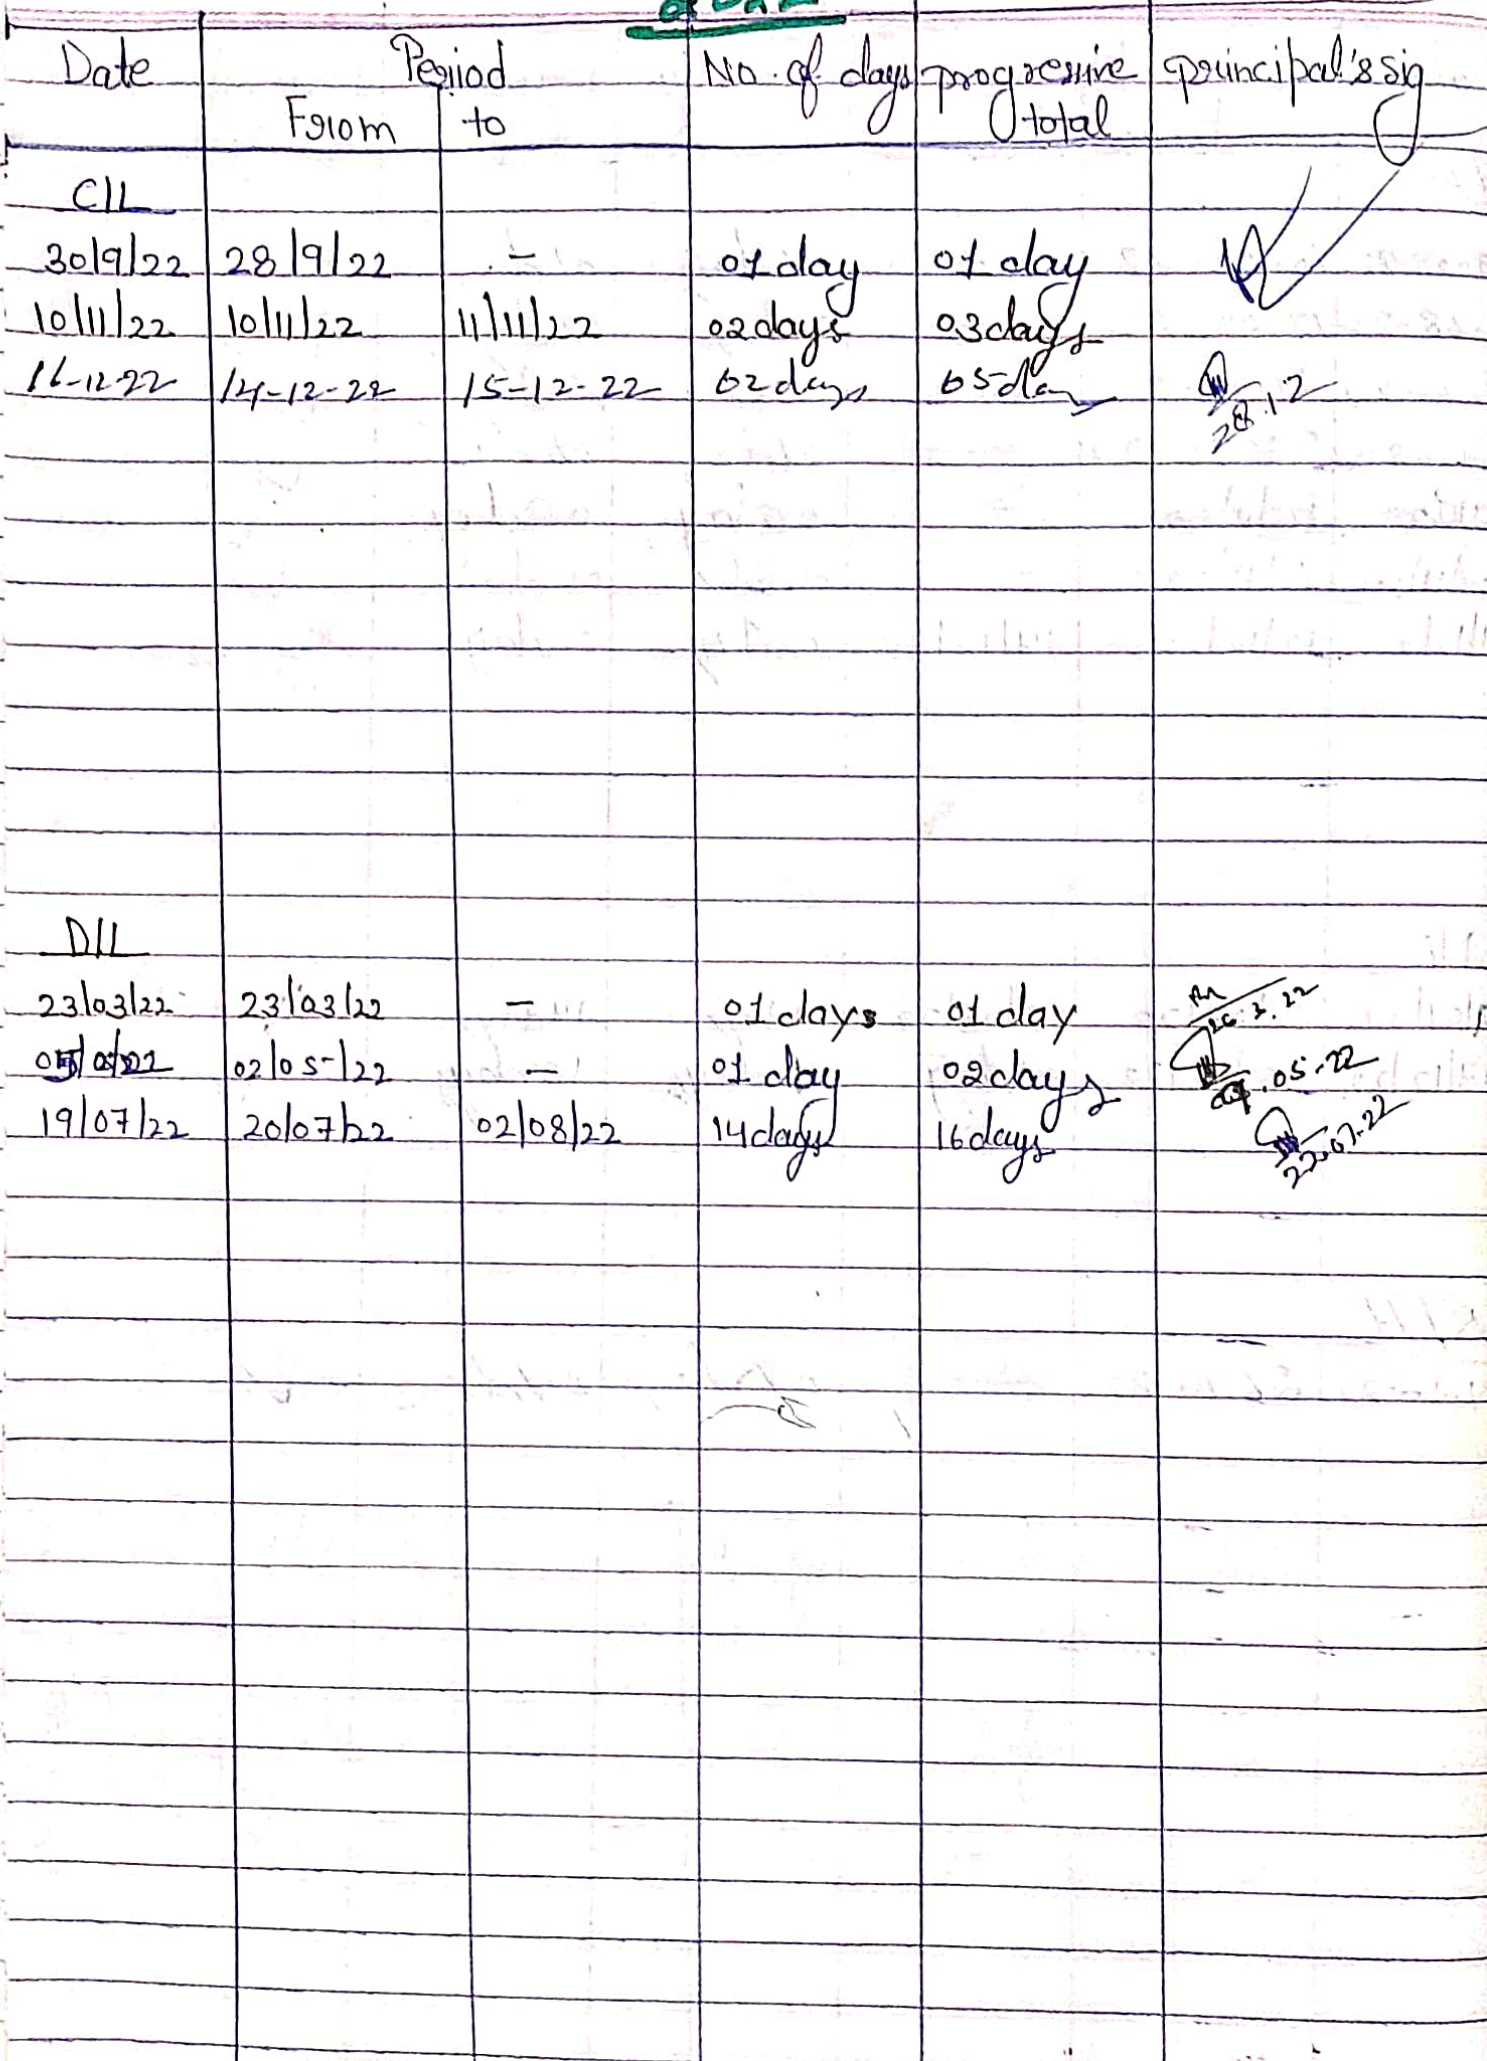 Date Period No. of days progressive principal's sig
From to total
C/L
30/9/22 28/9/22 - 01 day 01 day
10/11/22 10/11/22 11/11/22 02 days 03 days
16-12-22 14-12-22 15-12-22 02 days 05 day
28.12
D/L
23/03/22 23/03/22 - 01 days 01 day
26.3.22
02/05/22 - 01 day 02 days
.05.22
19/07/22 20/07/22 02/08/22 14 days 16 days
.07.22